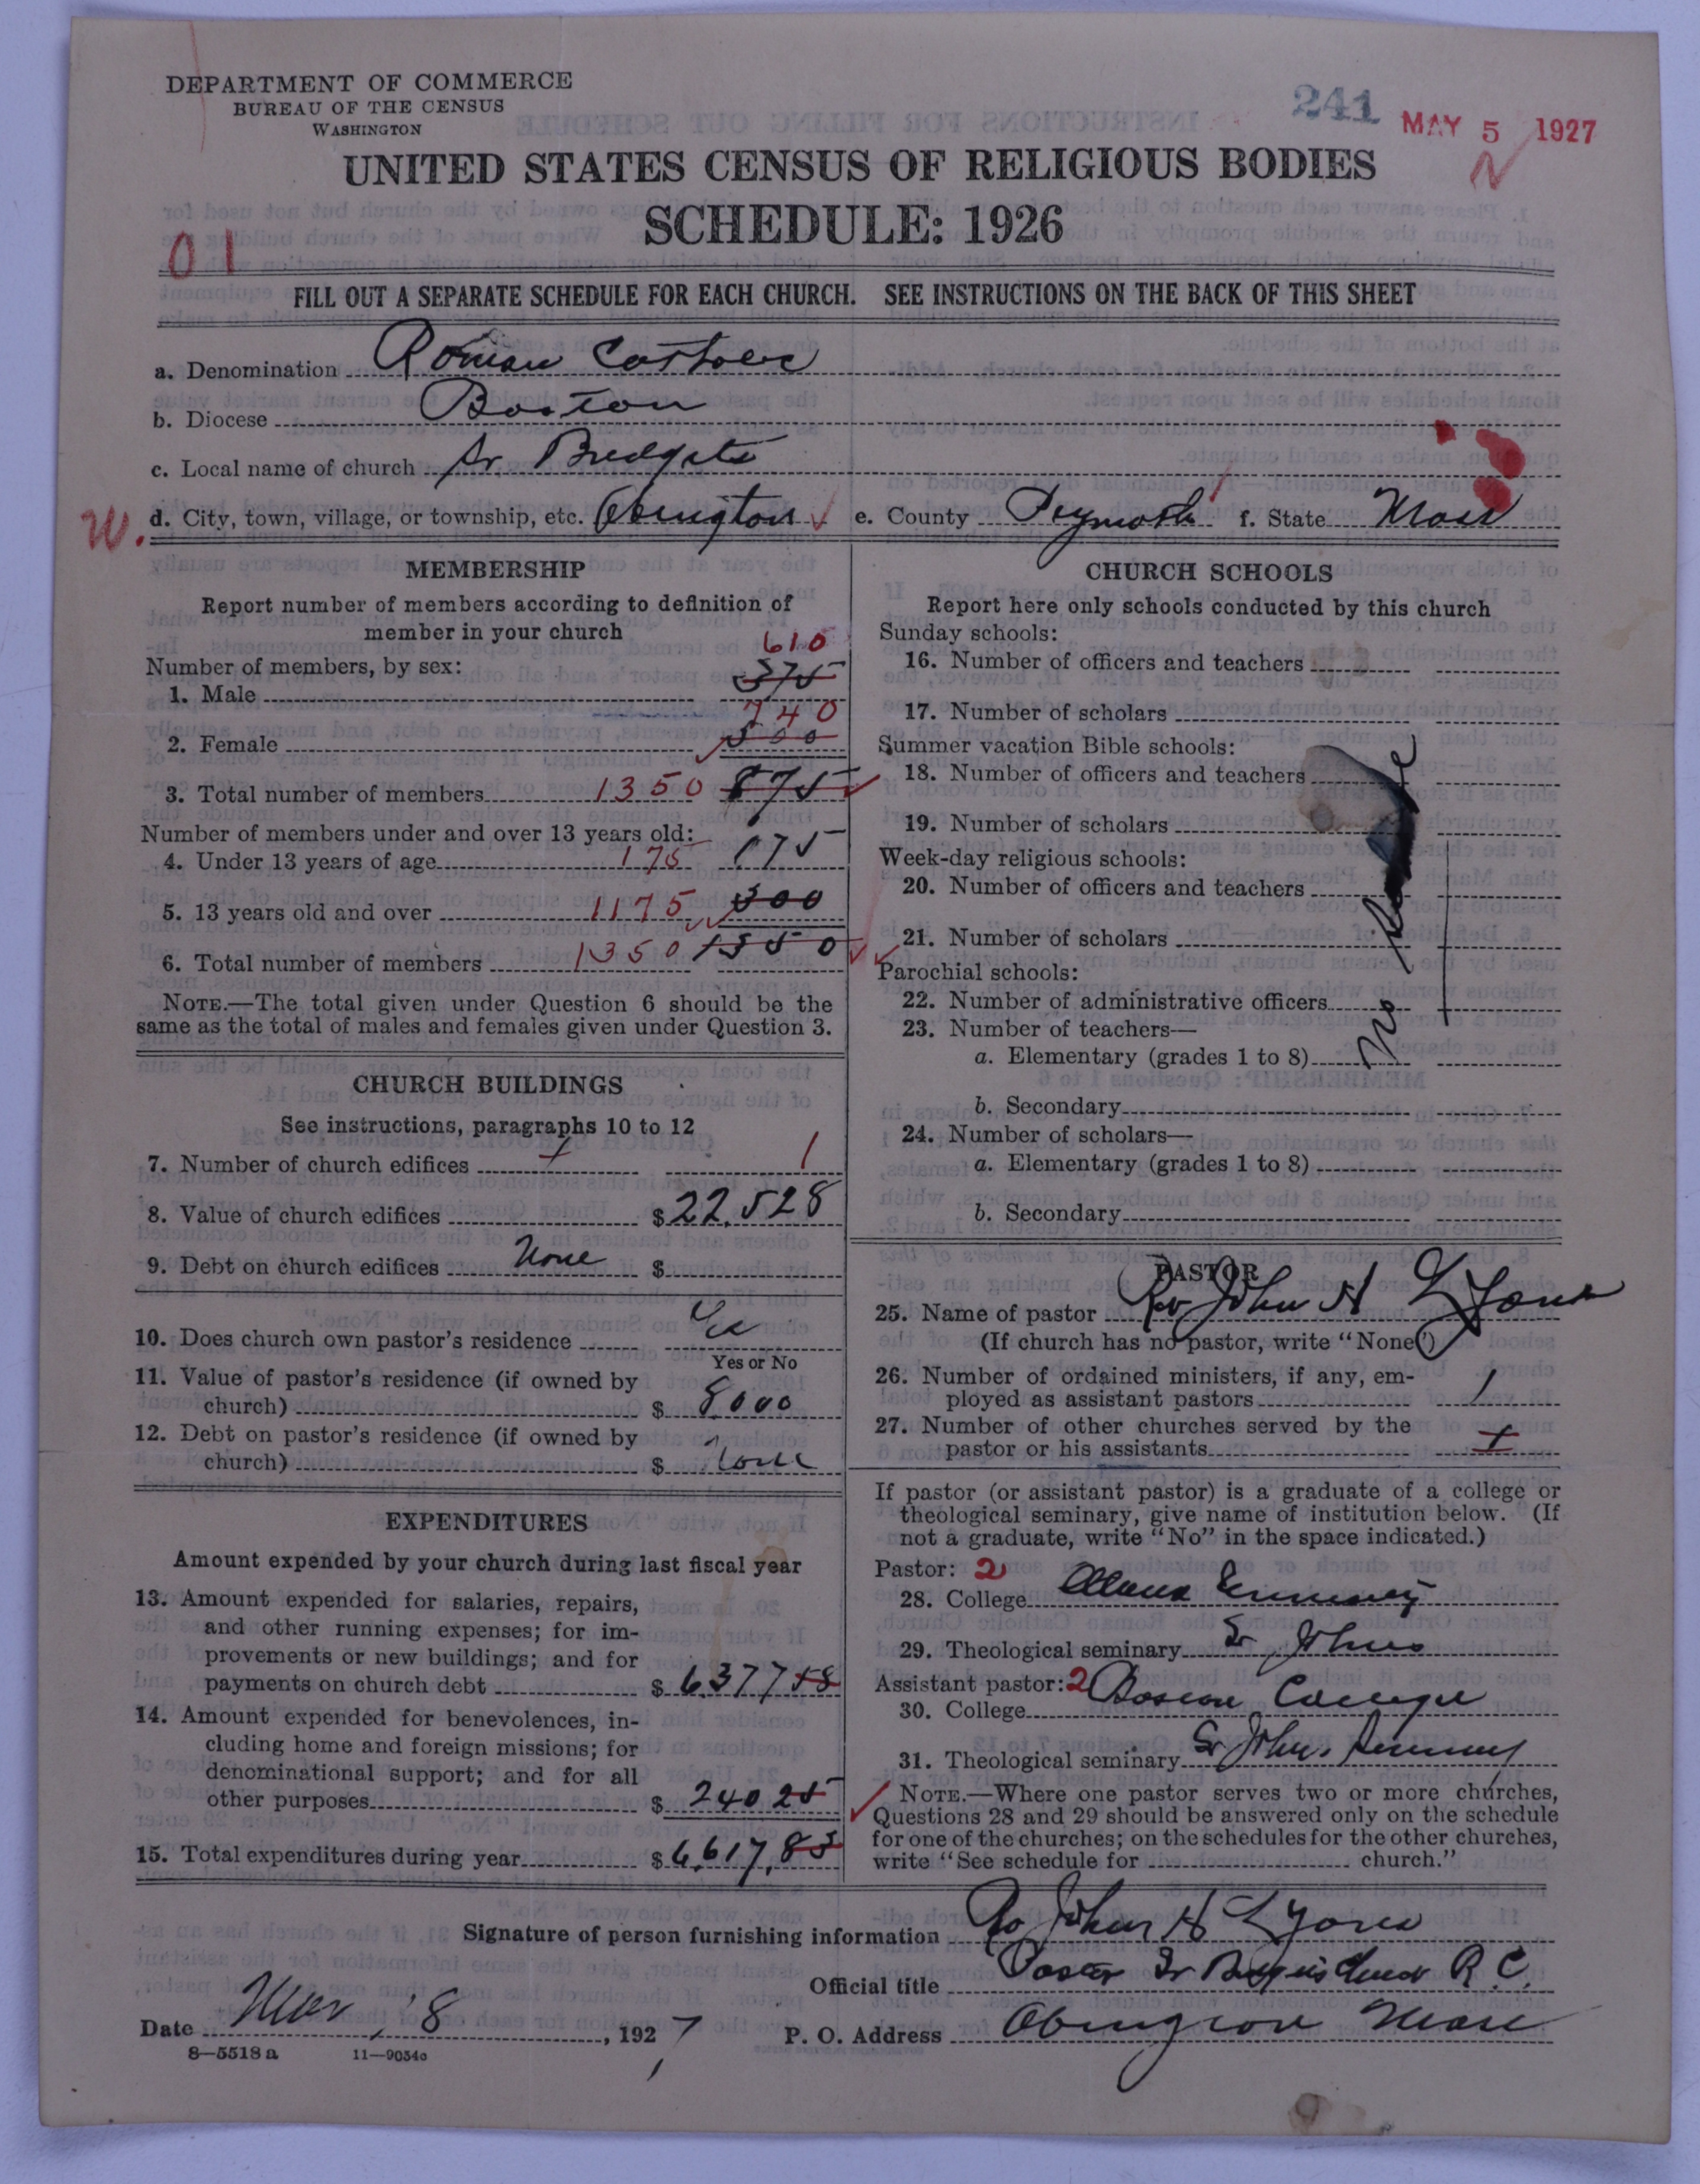 DEPARTMENT OF COMMERCE
BUREAU OF THE CENSUS
WASHINGTON
241 MAY 5 1927
N
UNITED STATES CENSUS OF RELIGIOUS BODIES
SCHEDULE: 1926
01
FILL OUT A SEPARATE SCHEDULE FOR EACH CHURCH. SEE INSTRUCTIONS ON THE BACK OF THIS SHEET
a. Denomination Roman Catholic
b. Diocese Boston
c. Local name of church St Bridgets
W. d. City, town, village, or township, etc. Abington e. County Plymouth f. State Mass
MEMBERSHIP
Report number of members according to definition of
member in your church
610
Number of members, by sex:
1. Male 375
740
2. Female 500
3. Total number of members 1350 875
Number of members under and over 13 years old:
4. Under 13 years of age 175 175
5. 13 years old and over 1175 300
6. Total number of members 1350 1350
NOTE.—The total given under Question 6 should be the
same as the total of males and females given under Question 3.
CHURCH BUILDINGS
See instructions, paragraphs 10 to 12
7. Number of church edifices 1 1
8. Value of church edifices $ 22,528
9. Debt on church edifices None $
10. Does church own pastor's residence Yes
Yes or No
11. Value of pastor's residence (if owned by
church) $ 8000
12. Debt on pastor's residence (if owned by
church) $ None
EXPENDITURES
Amount expended by your church during last fiscal year
13. Amount expended for salaries, repairs,
and other running expenses; for im-
provements or new buildings; and for
payments on church debt $ 6,377 58
14. Amount expended for benevolences, in-
cluding home and foreign missions; for
denominational support; and for all
other purposes $ 240 25
15. Total expenditures during year $ 6,617,83
CHURCH SCHOOLS
Report here only schools conducted by this church
Sunday schools:
16. Number of officers and teachers
17. Number of scholars
Summer vacation Bible schools:
18. Number of officers and teachers
19. Number of scholars
Week-day religious schools:
20. Number of officers and teachers
21. Number of scholars
Parochial schools:
22. Number of administrative officers
23. Number of teachers—
a. Elementary (grades 1 to 8)
No
b. Secondary
24. Number of scholars—
a. Elementary (grades 1 to 8)
b. Secondary
PASTOR
25. Name of pastor Rev John H Lyons
(If church has no pastor, write "None")
26. Number of ordained ministers, if any, em-
ployed as assistant pastors 1
27. Number of other churches served by the
pastor or his assistants 1
If pastor (or assistant pastor) is a graduate of a college or
theological seminary, give name of institution below. (If
not a graduate, write "No" in the space indicated.)
Pastor: 2
28. College
29. Theological seminary St Johns
Assistant pastor: 2
30. College Boston College
31. Theological seminary St Johns Seminary
NOTE.—Where one pastor serves two or more churches,
Questions 28 and 29 should be answered only on the schedule
for one of the churches; on the schedules for the other churches,
write "See schedule for church."
Signature of person furnishing information Rev John H Lyons
Official title Pastor St Bridgets Church R C
Date Mar 18, 1927 P. O. Address Abington Mass
8—5518 a 11—9034c